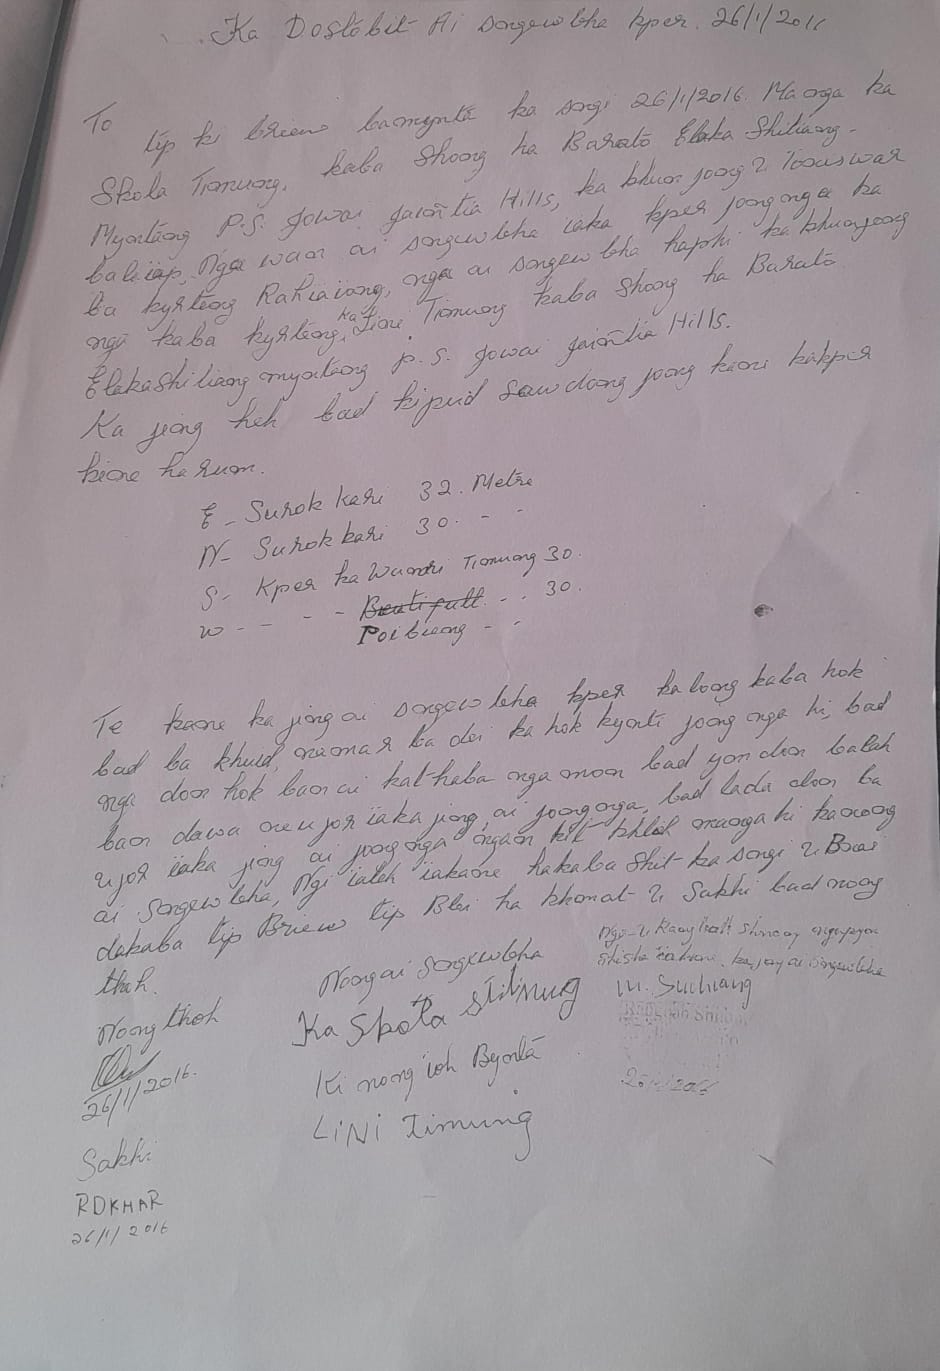 Ka Dostobit Ai sngewbha kper. 26/1/2016
To
tip ki briew bamynta ka sngi 26/1/2016. Ma nga ka
Skola Timung, kaba shong ha Barato Elaka Shiliang-
Myntang P.S. Jowai Jaintia Hills, ka khun jong U
baliap, Nga wan ai sngewbha ia ka kper jong nga ka
ba kyrteng Rahiaiong, nga ai sngewbha hapdi ka khun jong
nga kaba kyrteng Ka Lini Timung kaba shong ha Barato
Elakashiliang myntang P.S. Jowai Jaintia Hills.
Ka jong heh bad ki pud sawdong jong kane kakper
kine harum.
E - Surok kari 32. Metre
N - Surok kari 30. - -
S - Kper ka Timung 30.
W - - - - Poibiang - - 30.
Te kane ka jing ai sngewbha kper ka long kaba hok
bad ba khuid, namar ba dei ka hok kynti jong nga hi, bad
nga don hok ban ai kat kaba nga mon bad ym don balah
ban dawa ne ujor ia ka jing ai jong nga, bad lada don ba
ujor ia ka jing ai jong nga ngan khlad ma nga hi ka nong
ai sngewbha, Ngi iateh ia kane hakaba shit ka sngi U
dakaba tip Briew tip Blei ha khmat U Sakhi bad nong
thoh.
Nong ai sngewbha
M. Suchiang
Nong thoh
Ka Skola
26/1/2016.
Ki nong ioh Bynta
LiNi Timung
Sakhi
RDKHAR
26/1/2016